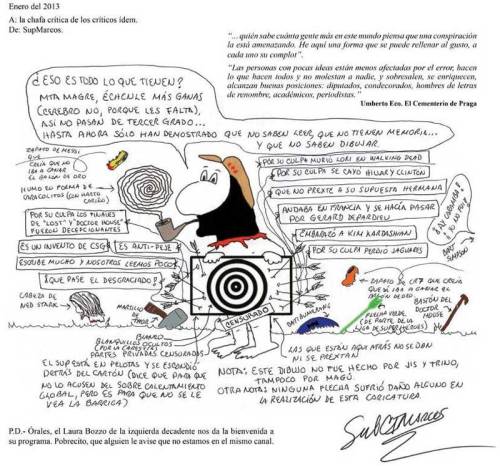 Enero del 2013
A: la chafa crítica de los críticos ídem.
De: SupMarcos.
"... quién sabe cuánta gente más en este mundo piensa que una conspiración
la está amenazando. He aquí una forma que se puede rellenar al gusto, a
cada uno su complot".
"Las personas con pocas ideas están menos afectadas por el error, hacen
lo que hacen todos y no molestan a nadie, y sobresalen, se enriquecen,
alcanzan buenas posiciones: diputados, condecorados, hombres de letras
de renombre, académicos, periodistas."
Umberto Eco. El Cementerio de Praga
¿ESO ES TODO LO QUE TIENEN?
MTA MAGRE, ÉCHENLE MÁS GANAS
(CEREBRO NO, PORQUE LES FALTA),
ASÍ NO PASAN DE TERCER GRADO...
HASTA AHORA SÓLO HAN DEMOSTRADO QUE NO SABEN LEER, QUE NO TIENEN MEMORIA...
Y QUE NO SABEN DIBUJAR.
ZAPATO DE MESSI
QUE
CREÍA QUE NO
IBA A GANAR
EL BALÓN DE ORO
HUMO EN FORMA DE
CARACOLITOS (CON HARTO
CARIÑO)
POR SU CULPA LOS FINALES
DE "LOST" Y "DOCTOR HOUSE"
FUERON DECEPCIONANTES
ES UN INVENTO DE CSG
ES ANTI-PEJE
ESCRIBE MUCHO Y NOSOTROS LEEMOS POCO
¡QUE PASE EL DESGRACIADO!
CABEZA DE
NED STARK
MARTILLO
DE THOR
POR SU CULPA MURIÓ LORI EN WALKING DEAD
POR SU CULPA SE CAYÓ HILLARY CLINTON
QUE NO PRESTE A SU SUPUESTA HERMANA
ANDABA EN FRANCIA Y SE HACÍA PASAR
POR GERARD DEPARDIEU
EMBARAZÓ A KIM KARDASHIAN
POR SU CULPA PERDIÓ JAGUARES
BART
SIMPSON
ZAPATO DE CR7 QUE CREÍA
QUE SÍ IBA A GANAR EL
BALÓN DE ORO
BASTÓN DEL
DOCTOR
HOUSE
FLECHA VERDE
(DE PARTE DE LA
LIGA DE SUPERHÉROES)
BATIBUMERANG
CENSURADO
BLANCO
BLANQUILLOS OCULTOS
(POR LA CARESTÍA)
PARTES PRIVADAS CENSURADAS
EL SUP ESTÁ EN PELOTAS Y SE ESCONDIÓ
DETRÁS DEL CARTÓN (DICE QUE PARA QUE
NO LO ACUSEN DEL SOBRE CALENTAMIENTO
GLOBAL, PERO ES PARA QUE NO SE LE
VEA LA BARRIGA)
LAS QUE ESTÁN AQUÍ ATRÁS NO SE DAN
NI SE PRESTAN
NOTA: ESTE DIBUJO NO FUE HECHO POR JIS Y TRINO,
TAMPOCO POR MAGÚ.
OTRA NOTA: NINGUNA FLECHA SUFRIÓ DAÑO ALGUNO EN
LA REALIZACIÓN DE ESTA CARICATURA
SubCIMarcos
P.D.- Órales, el Laura Bozzo de la izquierda decadente nos da la bienvenida a
su programa. Pobrecito, que alguien le avise que no estamos en el mismo canal.